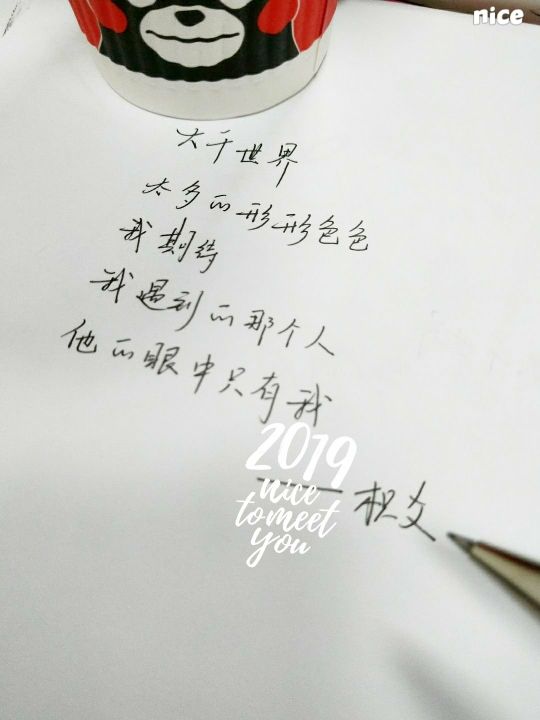 nice
大千世界
太多的形形色色
我期待
我遇到的那个人
他的眼中只有我
2019
nice
to meet
you
——枳爻